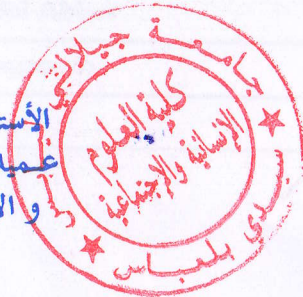 جامعة جيلالي
سيدي بلعباس
كلية العلوم
الإنسانية والإجتماعية
الأست
عميد
و الإ